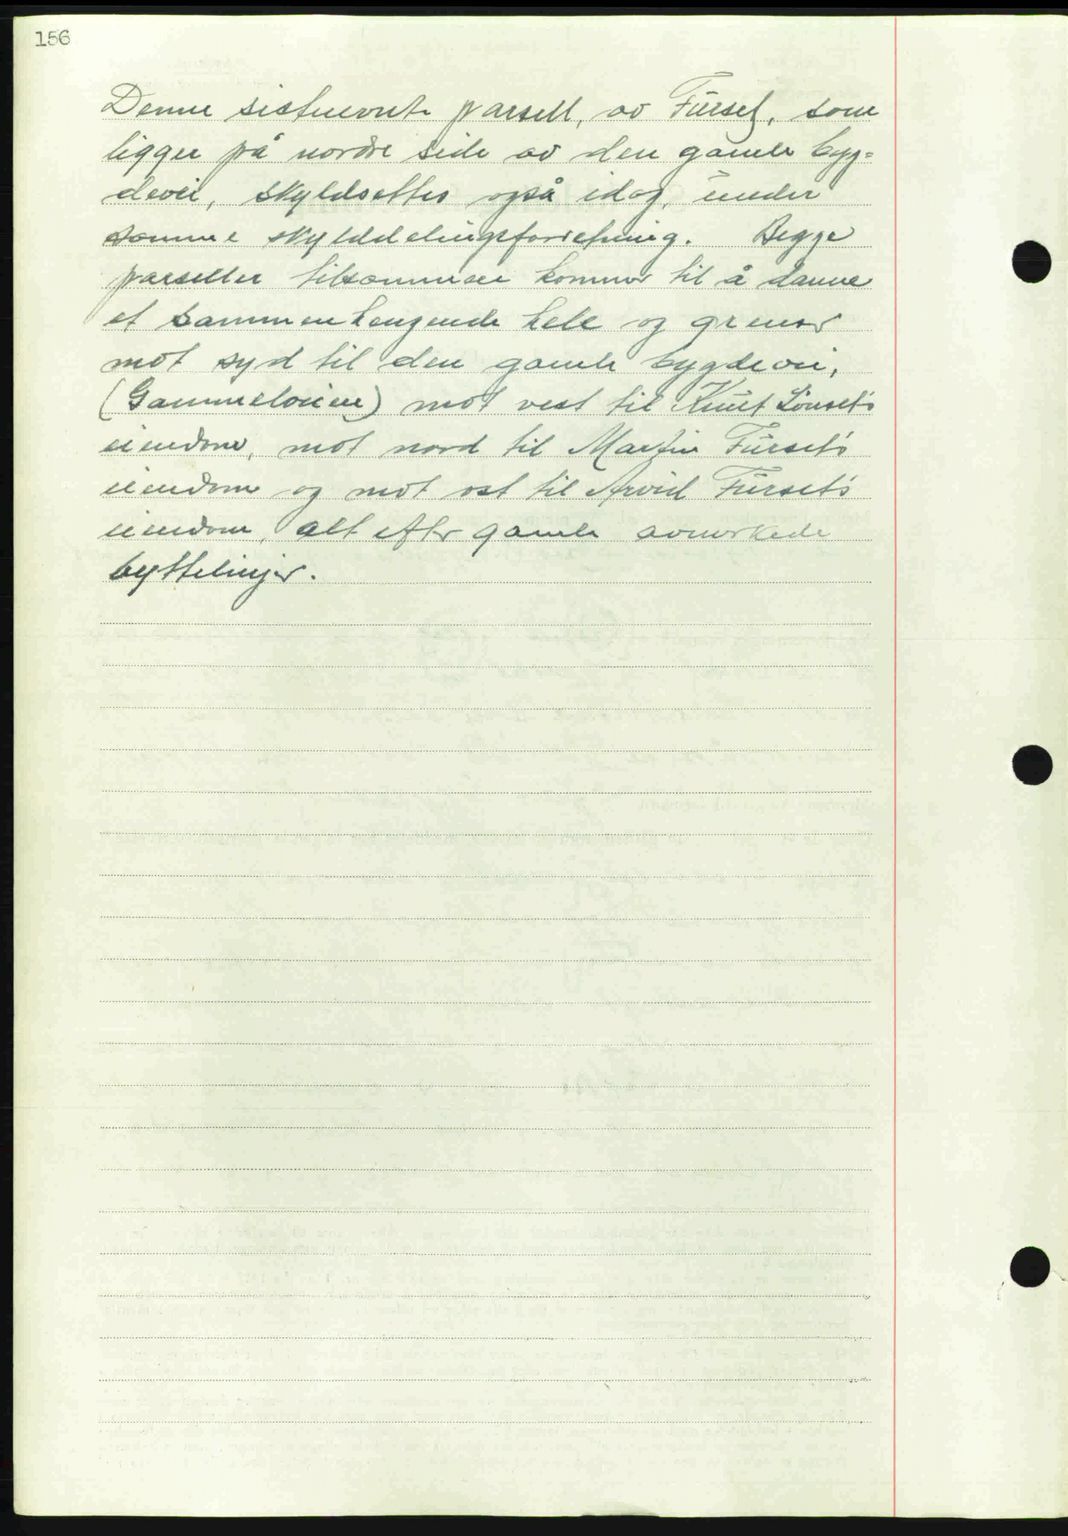 156
Denne sistnevnte parsell, av Furset, som
ligger på nordre side av den gamle byg=
devei, skyldsettes også idag, under
samme skylddelingsforretning. Begge
parseller tilsammen kommer til å danne
et sammenhengende hele og grenser
mot syd til den gamle bygdevei,
(Gammelveien) mot vest til Knut Lønset's
eiendom, mot nord til Martin Furset's
eiendom og mot ost til Arvid Furset's
eiendom, alt efter gamle avmerkede
byttelinjer.